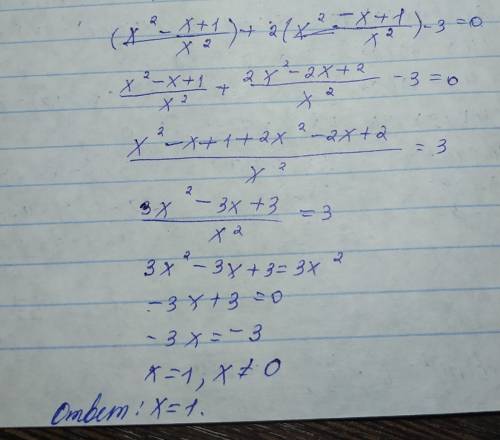 (x² - x + 1 / x²) + 2(x² - x + 1 / x²) - 3 = 0
x² - x + 1 / x² + 2x² - 2x + 2 / x² - 3 = 0
x² - x + 1 + 2x² - 2x + 2 / x² = 3
3x² - 3x + 3 / x² = 3
3x² - 3x + 3 = 3x²
-3x + 3 = 0
-3x = -3
x = 1, x ≠ 0
Ответ: x = 1.